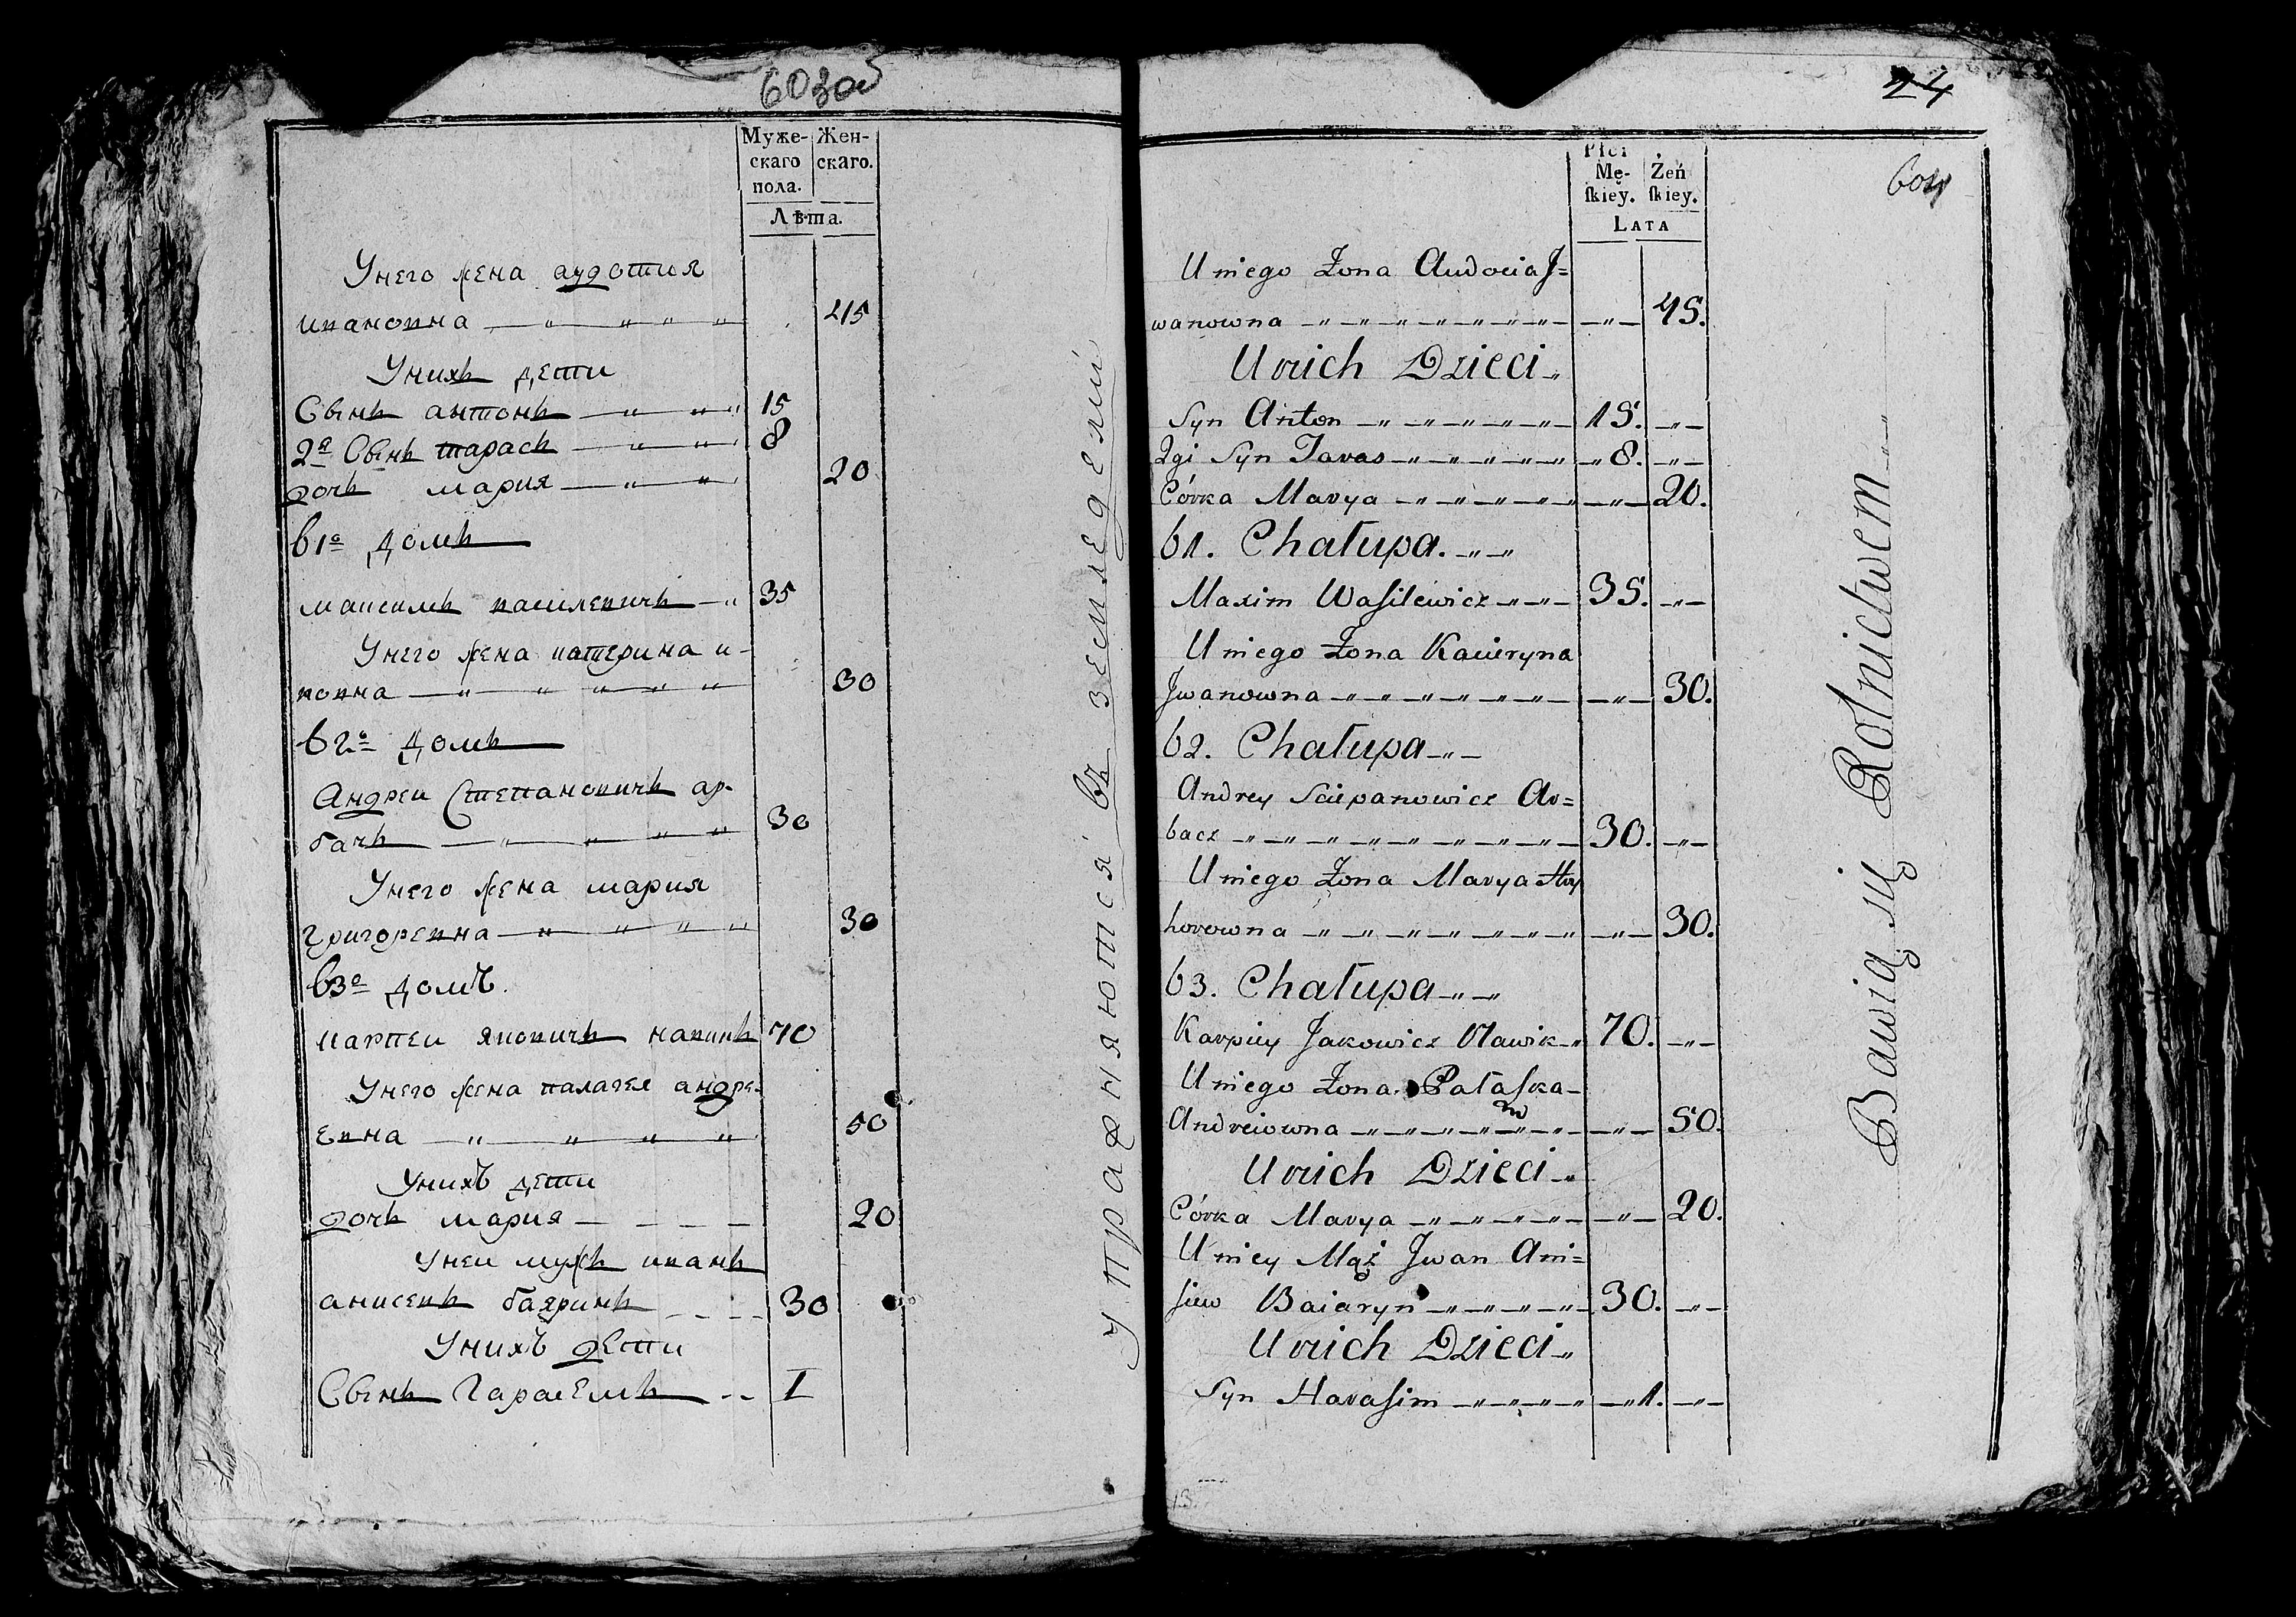 603об
Муже-
скаго
пола.
Жен-
скаго.
Лѣта.
Унего жена аудотия
ивановна 45
Унихъ дети
Сынъ антонъ 15
2й Сынъ тарасъ 8
дочь мария 20
61е домъ
максимъ василевичъ 35
Унего жена катерина и-
вовна 30
62е домъ
Андреи Степановичъ ар-
бачъ 30
Унего жена мария
григоревна 30
63е домъ
карпеи яковичъ навикъ 70
Унего жена палагея андре-
евна 50
Унихъ дети
дочь мария 20
Унеи мужъ иванъ
анисевъ баяринъ 30
Унихъ дети
Сынъ Гарасемъ 1
упражняются въ земледелии
24
604
Płci
Mę-
skiey.
Żeń
skiey.
LATA
U niego Żona Audocia J=
wanowna 45.
U nich Dzieci
Syn Anton 15.
2gi Syn Taras 8.
Córka Marya 20.
61. Chałupa.
Maxim Wasilewicz 35.
U niego Żona Kacieryna
Jwanowna 30.
62. Chałupa
Andrey Sciepanowicz Ar=
bacz 30.
U niego Żona Marya Hry
horowna 30.
63. Chałupa
Karpiey Jakowicz Nawik 70.
U niego Żona Pałaska
Andreiowna 50.
U nich Dzieci
Córka Marya 20.
U niey Mąż Jwan Ani=
siew Baiaryn 30.
U nich Dzieci
Syn Harasim 1.
Bawią się Rolnictwem
13.